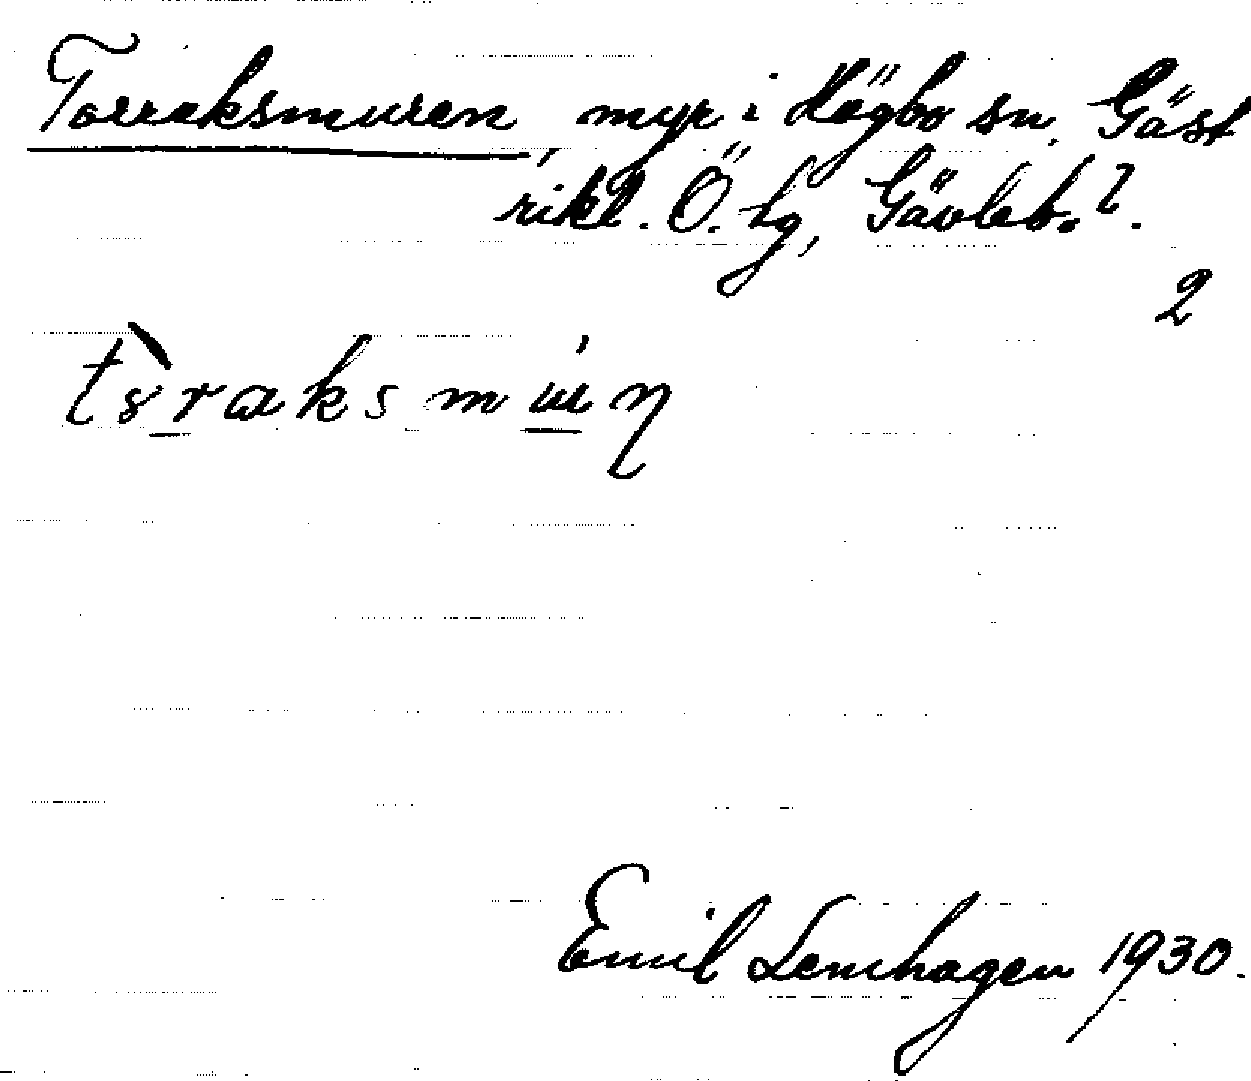 Torraksmuren, myr i Högbo sn, Gäst
rikl. Ö. hg, Gävleb. l.
2
Emil Lenhagen 1930.